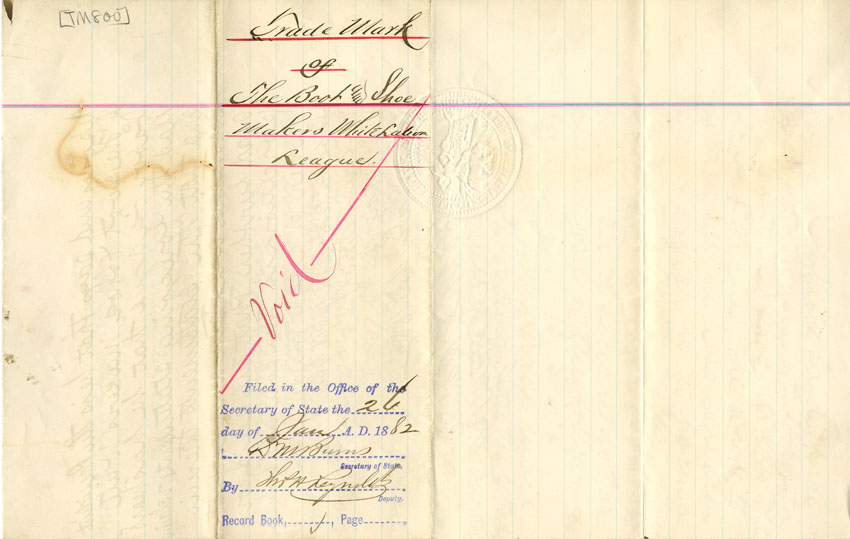 [TM800]
Trade Mark
of
The Boot & Shoe
Makers White Labor
League.
Void
Filed in the Office of the
Secretary of State the 26
day of Jan A. D. 1882
D M Burns
Secretary of State.
By Thos H Reynolds
Deputy.
Record Book, 1, Page